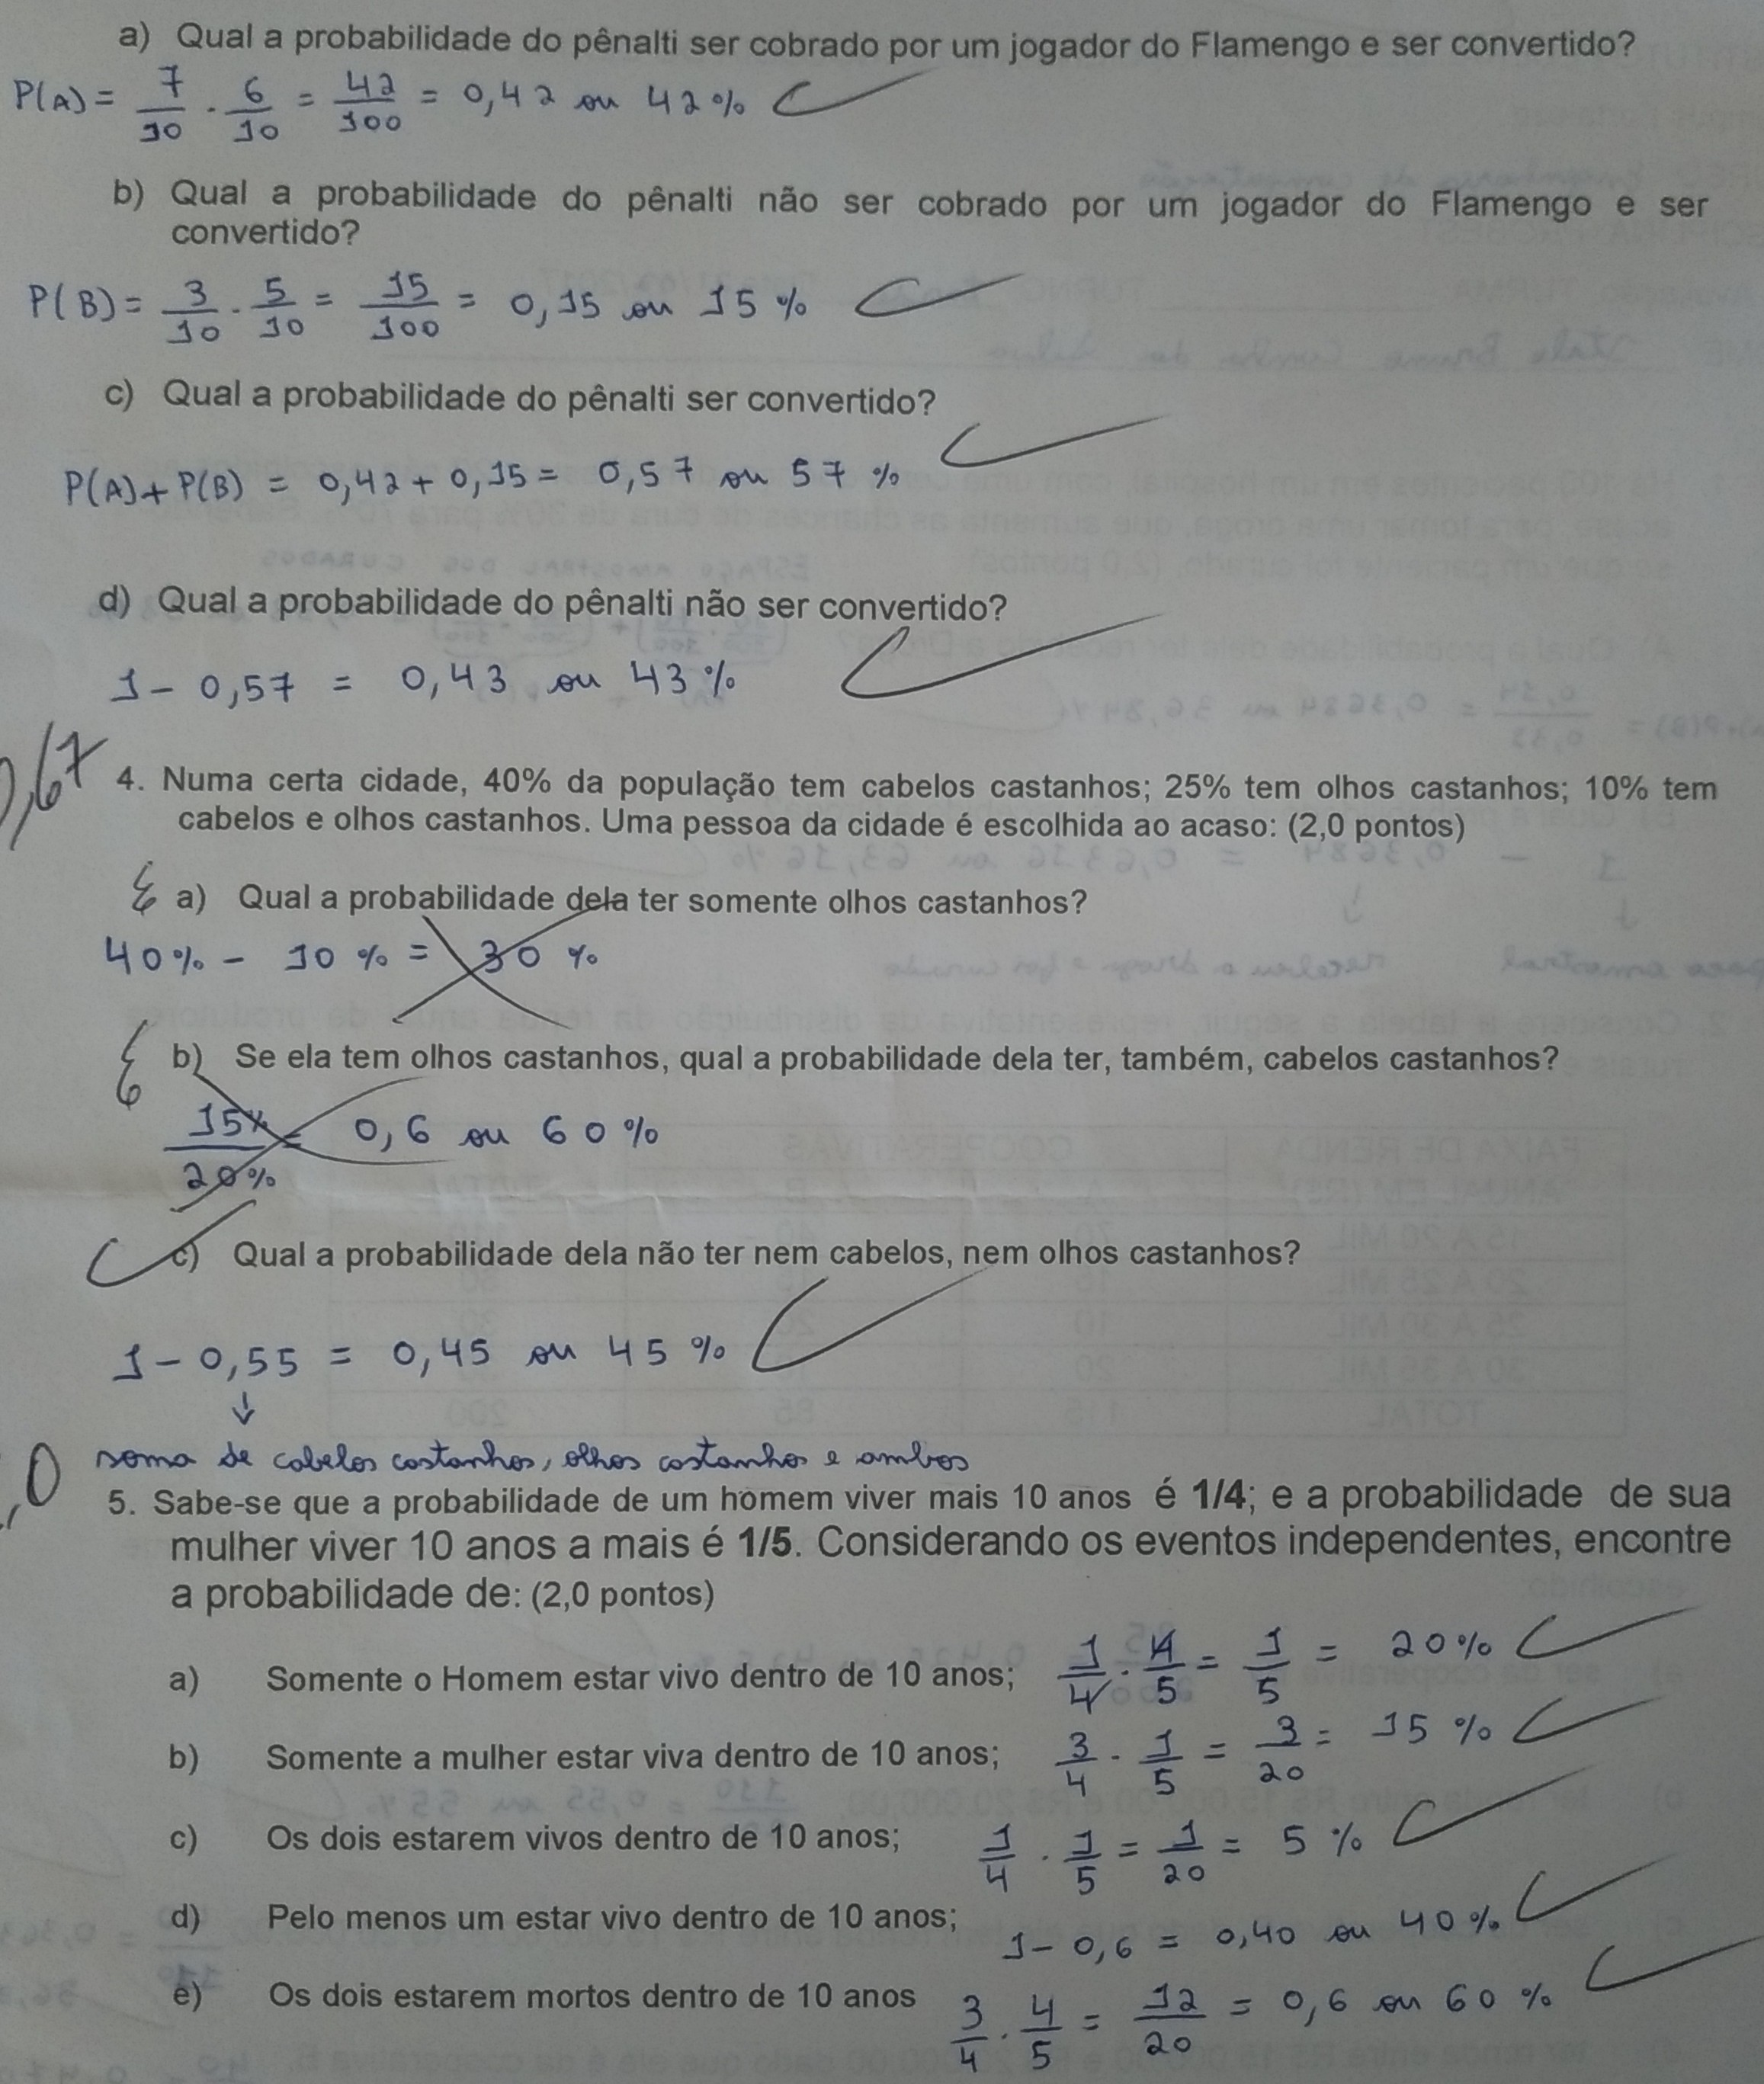 a) Qual a probabilidade do pênalti ser cobrado por um jogador do Flamengo e ser convertido?
P(A) = 7/10 . 6/10 = 42/100 = 0,42 ou 42%
b) Qual a probabilidade do pênalti não ser cobrado por um jogador do Flamengo e ser
convertido?
P(B) = 3/10 . 5/10 = 15/100 = 0,15 ou 15%
c) Qual a probabilidade do pênalti ser convertido?
P(A) + P(B) = 0,42 + 0,15 = 0,57 ou 57%
d) Qual a probabilidade do pênalti não ser convertido?
1 - 0,57 = 0,43 ou 43%
0,67
4. Numa certa cidade, 40% da população tem cabelos castanhos; 25% tem olhos castanhos; 10% tem
cabelos e olhos castanhos. Uma pessoa da cidade é escolhida ao acaso: (2,0 pontos)
a) Qual a probabilidade dela ter somente olhos castanhos?
40% - 10% = 30%
b) Se ela tem olhos castanhos, qual a probabilidade dela ter, também, cabelos castanhos?
15%/20% = 0,6 ou 60%
c) Qual a probabilidade dela não ter nem cabelos, nem olhos castanhos?
1 - 0,55 = 0,45 ou 45%
↓
soma de cabelos castanhos, olhos castanhos e ambos
5. Sabe-se que a probabilidade de um homem viver mais 10 anos é 1/4; e a probabilidade de sua
mulher viver 10 anos a mais é 1/5. Considerando os eventos independentes, encontre
a probabilidade de: (2,0 pontos)
a) Somente o Homem estar vivo dentro de 10 anos; 1/4 . 4/5 = 1/5 = 20%
b) Somente a mulher estar viva dentro de 10 anos; 3/4 . 1/5 = 3/20 = 15%
c) Os dois estarem vivos dentro de 10 anos; 1/4 . 1/5 = 1/20 = 5%
d) Pelo menos um estar vivo dentro de 10 anos; 1 - 0,6 = 0,40 ou 40%
e) Os dois estarem mortos dentro de 10 anos 3/4 . 4/5 = 12/20 = 0,6 ou 60%